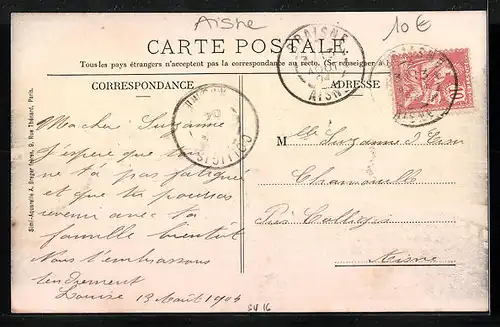 Aisne
10€
CARTE POSTALE
Tous les pays étrangers n'acceptent pas la correspondance au recto. (Se renseigner à
CORRESPONDANCE
ADRESSE
BRAISNE
AOUT
04
AISNE
BRAISNE
AISNE
10
AISNE
04
Simi-Aquarelle A. Breger frères, 9, Rue Thénard, Paris.
Ma chère Suzanne
J'espère que
ne t'a pas fatiguée
et que tu pourras
revenir avec ta
famille bientôt
Nous t'embrassons
tendrement
Louise 13 Août 1904
M lle Suzanne
Chamouille
Près Colligis
Aisne
SU 16